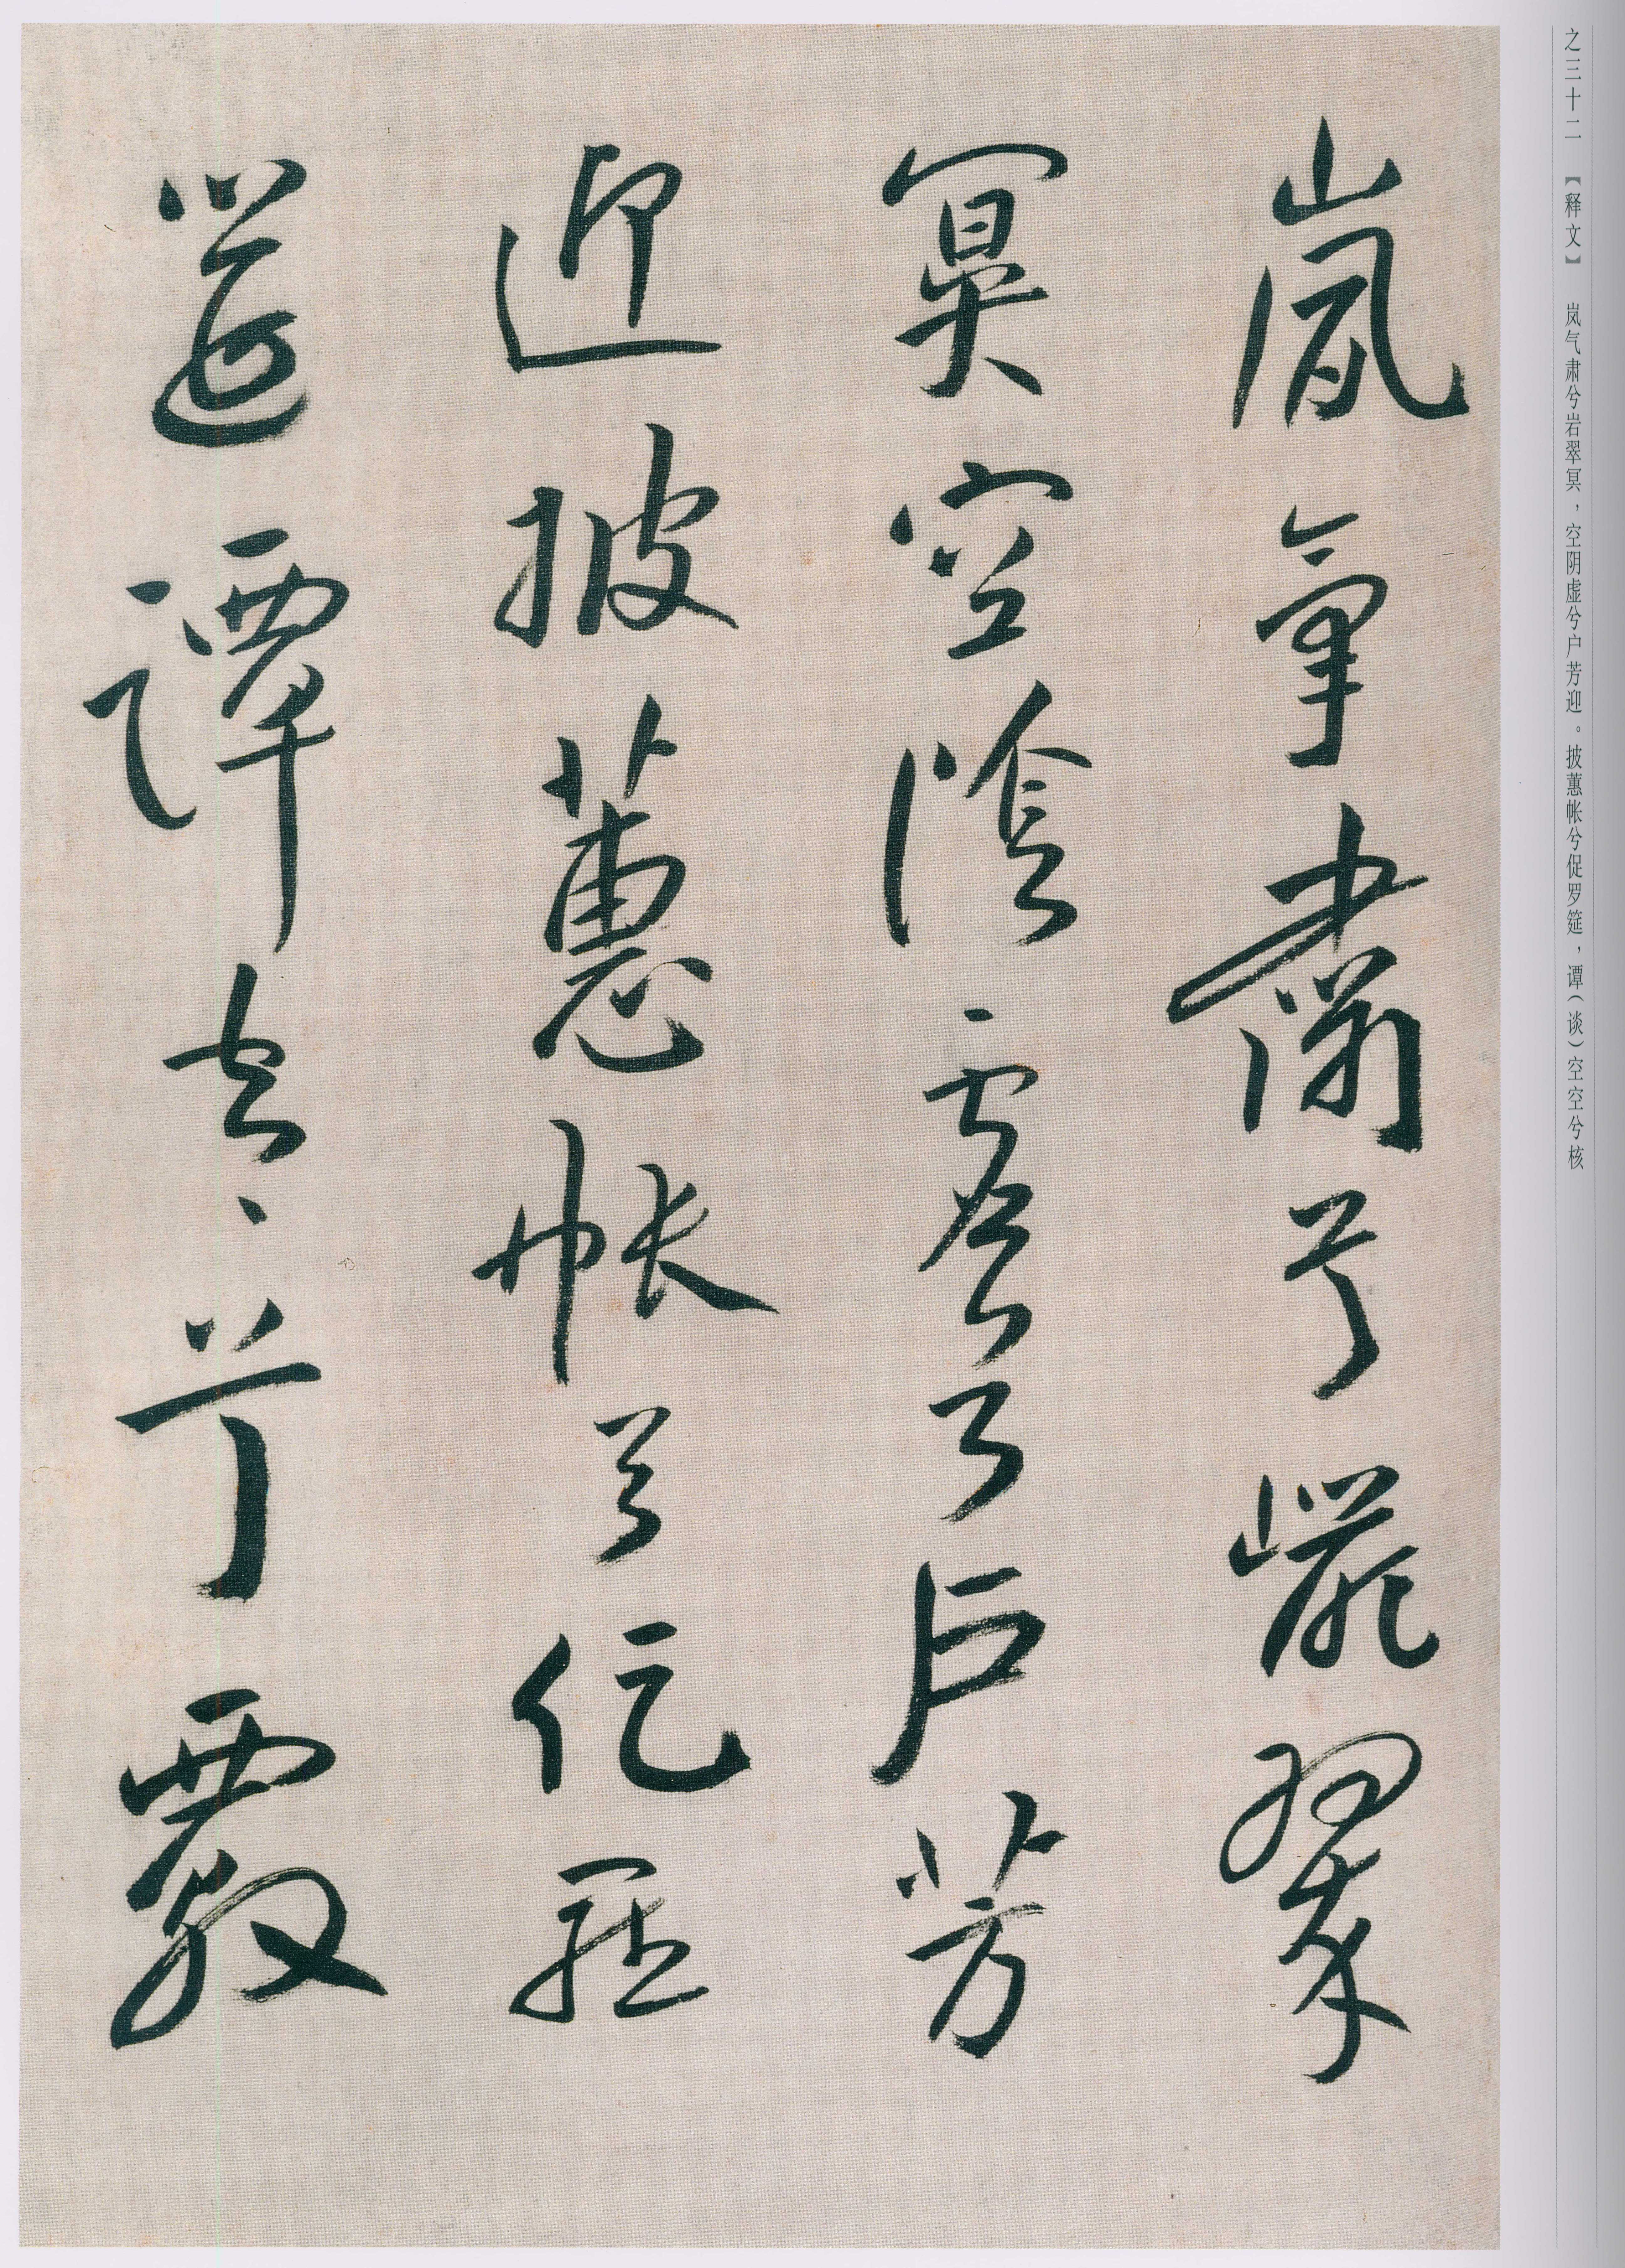 之三十二 【释文】 岚气肃兮岩翠冥，空阴虚兮户芳迎。披蕙帐兮促罗筵，谭（谈）空空兮核
嵐氣肅兮巖翠
冥空陰虛兮戶芳
迎披蕙帳兮促羅
筵譚空、兮覈